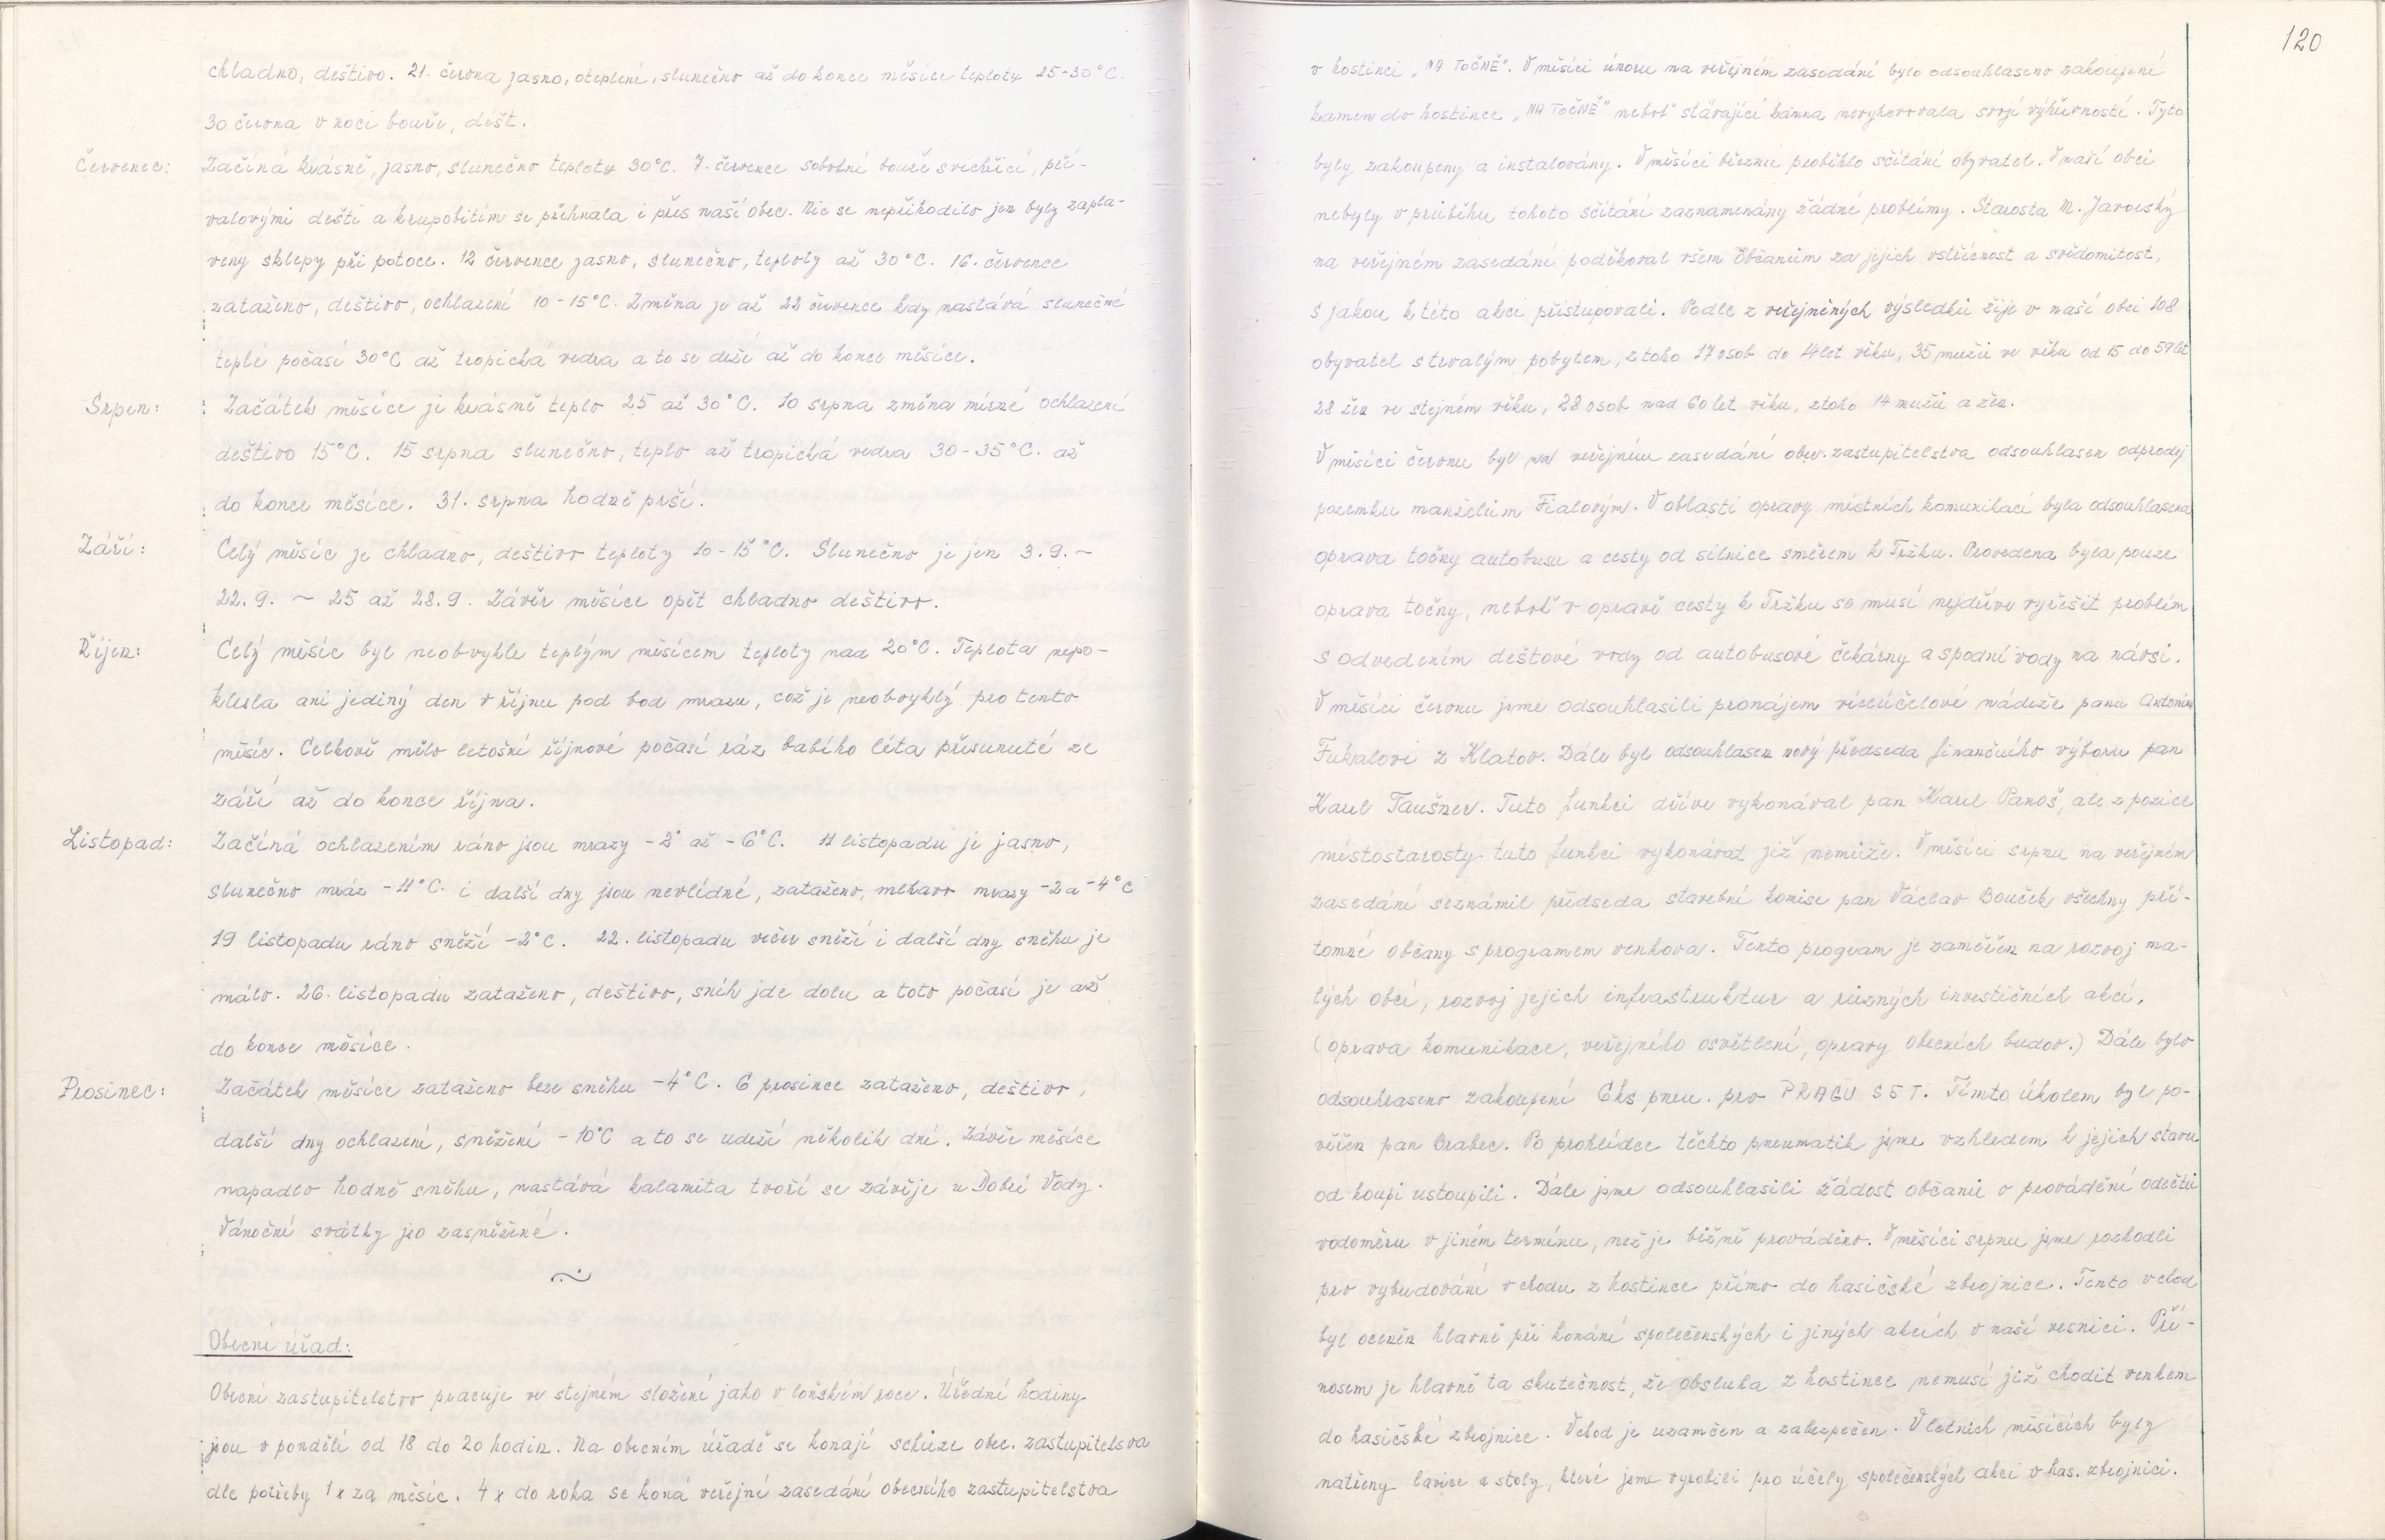 chladno, deštivo. 21. června jasno, oteplení, slunečno až do konce měsíce teploty 25-30°C.
30 června v noci bouře, déšť.
Červenec: Začíná krásně, jasno, slunečno teploty 30°C. 7. července sobotní bouře s vichřicí, pří-
valovými dešti a krupobitím se přehnala i přes naší obec. Nic se nepřihodilo jen byly zapla-
veny sklepy při potoce. 12 července jasno, slunečno, teploty až 30°C. 16. července
zataženo, deštivo, ochlazení 10-15°C. Změna je až 22 července kdy nastává slunečné
teplé počasí 30°C až tropická vedra a to se drží až do konce měsíce.
Srpen: Začátek měsíce je krásně teplo 25 až 30°C. 10 srpna změna mírné ochlazení
deštivo 15°C. 15 srpna slunečno, teplo až tropická vedra 30-35°C. až
do konce měsíce. 31. srpna hodně prší.
Září: Celý měsíc je chladno, deštivo teploty 10-15°C. Slunečno je jen 3.9. ~
22.9. ~ 25 až 28.9. Závěr měsíce opět chladno deštivo.
Říjen: Celý měsíc byl neobvykle teplým měsícem teploty nad 20°C. Teplota nepo-
klesla ani jediný den v říjnu pod bod mrazu, což je neobvyklý pro tento
měsíc. Celkově mělo letošní říjnové počasí ráz babího léta přesunuté ze
září až do konce října.
Listopad: Začíná ochlazením ráno jsou mrazy -2° až -6°C. 11 listopadu je jasno,
slunečno mráz -11°C. i další dny jsou nevlídné, zataženo, mlhavo mrazy -2 a -4°C
19 listopadu ráno sněží -2°C. 22. listopadu večer sněží i další dny sněhu je
málo. 26. listopadu zataženo, deštivo, sníh jde dolu a toto počasí je až
do konce měsíce.
Prosinec: Začátek měsíce zataženo beze sněhu -4°C. 6 prosince zataženo, deštivo,
další dny ochlazení, sněžení -10°C a to se udrží několik dní. Závěr měsíce
napadlo hodně sněhu, nastává kalamita tvoří se závěje u Dobré Vody.
Vánoční svátky jso zasněžené.
~
Obecní úřad:
Obecní zastupitelstvo pracuje ve stejném složení jako v loňském roce. Úřední hodiny
jsou v pondělí od 18 do 20 hodin. Na obecním úřadě se konají schůze obec. zastupitelsva
dle potřeby 1x za měsíc. 4x do roka se koná veřejné zasedání obecního zastupitelstva
120
v hostinci „NA TOČNĚ". V měsíci únoru na veřejném zasedání bylo odsouhlaseno zakoupení
kamen do hostince „NA TOČNĚ" neboť stávající kamna nevyhovovala svojí výhřevností. Tyto
byly zakoupeny a instalovány. V měsíci březnu proběhlo sčítání obyvatel. V naší obci
nebyly v průběhu tohoto sčítání zaznamenány žádné problémy. Starosta M. Javorský
na veřejném zasedání poděkoval všem občanům za jejich vstřícnost a svědomitost,
s jakou k této akci přistupovali. Podle zveřejněných výsledků žije v naší obci 108
obyvatel s trvalým pobytem, z toho 17 osob do 14 let věku, 35 mužů ve věku od 15 do 59 let
28 žen ve stejném věku, 28 osob nad 60 let věku, z toho 14 mužů a žen.
V měsíci červnu byl na veřejném zasedání obec. zastupitelstva odsouhlasen odprodej
pozemku manželům Fialovým. V oblasti opravy místních komunikací byla odsouhlasena
oprava točny autobusu a cesty od silnice směrem k Tržku. Provedena byla pouze
oprava točny, neboť v opravě cesty k Tržku se musí nejdříve vyřešit problém
s odvedením deštové vody od autobusové čekárny a spodní vody na návsi.
V měsíci červnu jsme odsouhlasili pronájem víceúčelové nádrže panu Antonínu
Fukalovi z Klatov. Dále byl odsouhlasen nový předseda finančního výboru pan
Karel Taušner. Tuto funkci dříve vykonával pan Karel Panoš, ale z pozice
místostarosty tuto funkci vykonávat již nemůže. V měsíci srpnu na veřejném
zasedání seznámil předseda stavební komise pan Václav Bouček všechny pří-
tomné občany s programem venkova. Tento program je zaměřen na rozvoj ma-
lých obcí, rozvoj jejich infrastruktur a různých investičních akcí,
(oprava komunikace, veřejného osvětlení, opravy obecních budov.) Dále bylo
odsouhlaseno zakoupení 6ks pneu. pro PRAGU S5T. Tímto úkolem byl po-
věřen pan Brabec. Po prohlídce těchto pneumatik jsme vzhledem k jejich stavu
od koupi ustoupili. Dále jsme odsouhlasili žádost občanů o provádění odečtů
vodoměru v jiném termínu, než je běžně prováděno. V měsíci srpnu jsme rozhodli
pro vybudování vchodu z hostince přímo do hasičské zbrojnice. Tento vchod
byl oceněn hlavně při konání společenských i jiných akcích v naší vesnici. Pří-
nosem je hlavně ta skutečnost, že obsluha z hostince nemusí již chodit venkem
do hasičské zbrojnice. Vchod je uzamčen a zabezpečen. V letních měsících byly
natřeny lavice a stoly, které jsme vyrobili pro účely společenských akcí v has. zbrojnici.